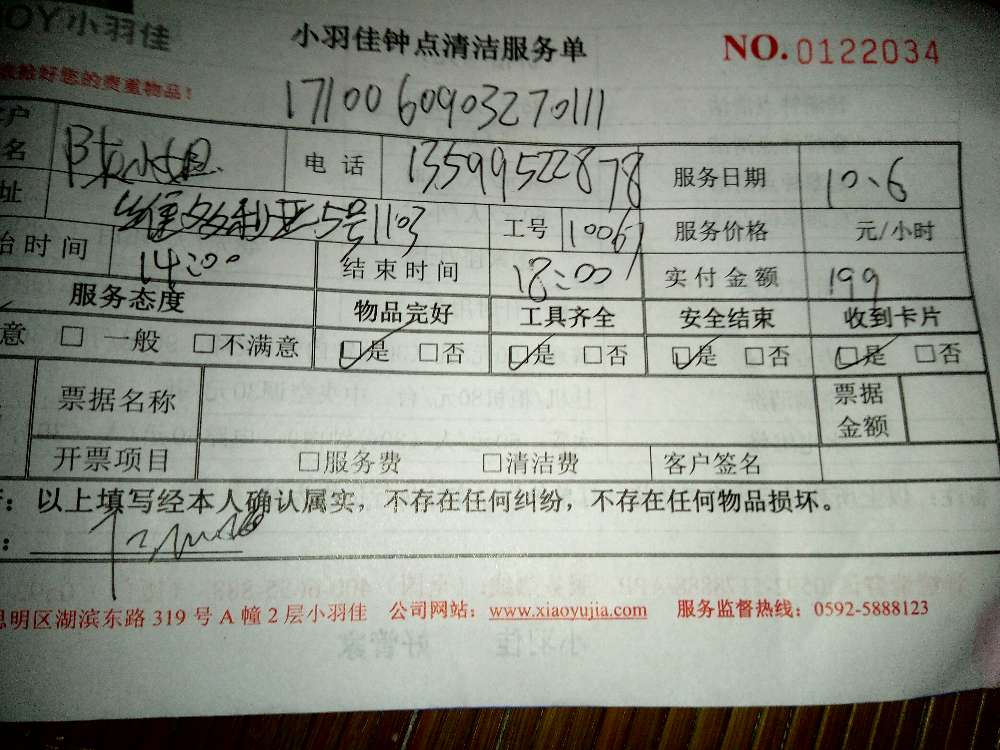 JOY小羽佳
小羽佳钟点清洁服务单 NO.0122034
您的贵重物品！
1710060903270111
户名 陈小姐 电话 13599522878 服务日期 10.6
址 维多利亚5号1103 工号 10067 服务价格 元/小时
始时间 14:00 结束时间 18:00 实付金额 199
服务态度 物品完好 工具齐全 安全结束 收到卡片
意 □一般 □不满意 □是 □否 □是 □否 □是 □否 □是 □否
票据名称 票据金额
开票项目 □服务费 □清洁费 客户签名
：以上填写经本人确认属实，不存在任何纠纷，不存在任何物品损坏。
：
思明区湖滨东路 319 号 A 幢 2 层小羽佳 公司网站：www.xiaoyujia.com 服务监督热线：0592-5888123